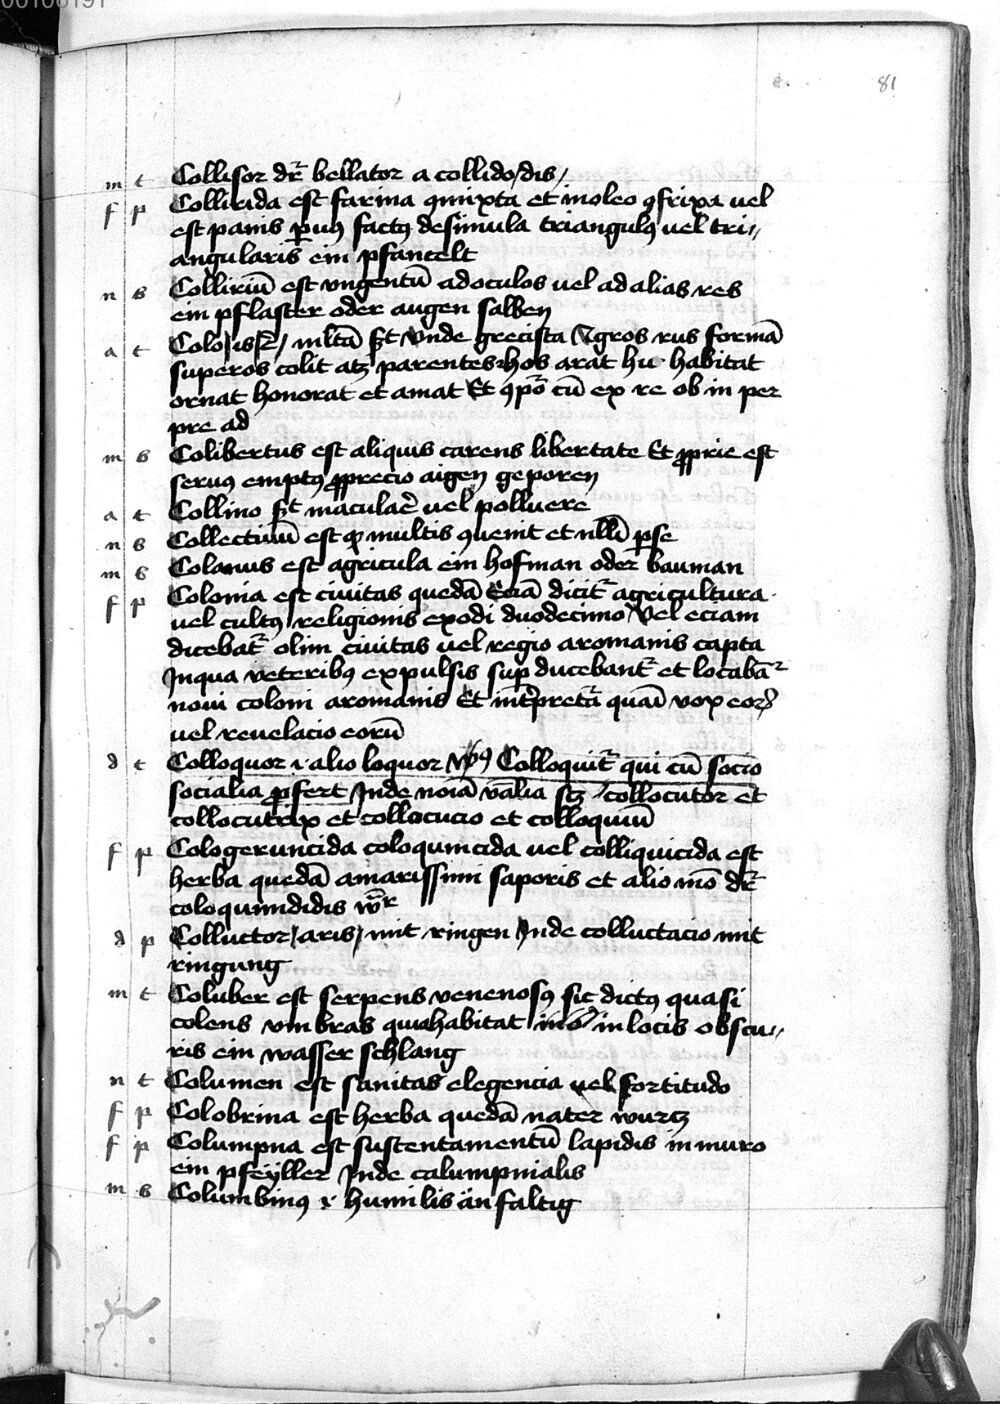 00106191
81
m t Collisor dr̄ bellator a collido / dis /
f p Collirida est farina qmixta et inoleo ꝯfrixa uel
est panis ꝑuꝰ factꝰ desimula triangulꝰ uel tri//
angularis ein pfanczelt
n s Colliriū est vngentū adoculos uel ad alias res
ein pflaster oder augen salben
a t Colo / is / ml̄tā sꝫt vnde grecista Agros rus formā
superos colit atꝫ parentes hos arat hic habitat
ornat honorat et amat Et ꝯpo cū ex re ob in per
pre ad
m s Colibertus est aliquis carens libertate Et ꝓprie est
seruꝰ emptꝰ ꝓprecio aigen geporen
a t Collino sꝫt maculare uel polluere
n s Collectiuū est qd multis ꝯuenit et nlli ꝑ se
m s Colonus est agricula ein hofman oder bauman
f p Colonia est ciuitas quedā Eciā dicit̄ agricultura
uel cultꝰ religionis exodi duodecimo Vel eciam
dicebat̄ olim ciuitas uel regio aromanis capta
Inqua veteribꝰ expulsis sup ducebant̄ et locabā
noui coloni aromanis Et int̄pretā quasi vox eoꝝ
uel reuelacio eorū
d t Colloquor i alio loquor vsꝰ Colloquit̄ qui cū socio
socialia ꝓfert Inde noīa v̄alia scꝫ / collocutor et
collocutrix et collocucio et colloquiū
f p Cologeruncida coloquincida uel colliquicida est
herba quedā amarissimi saporis et alio mō dr̄
coloquindidis
d p Colluctor / aris / mit ringen Inde colluctacio mit
ringung
m t Coluber est serpens venenosꝰ sic dictꝰ quasi
colens vmbras quia habitat inlocis obscu//
ris ein wasser schlang
n t Columen est sanitas elegencia uel fortitudo
f p Colobrina est herba quedā nater wurcz
f p Columpna est sustentamentū lapidis in muro
ein pfeyller Inde calumpnialis
m s Columbinꝰ i humilis änfaltig